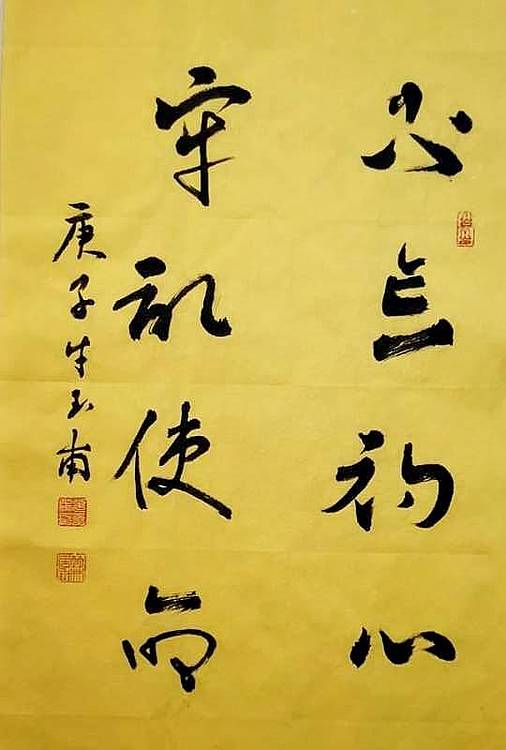 不忘初心
牢記使命
庚子牛玉甫